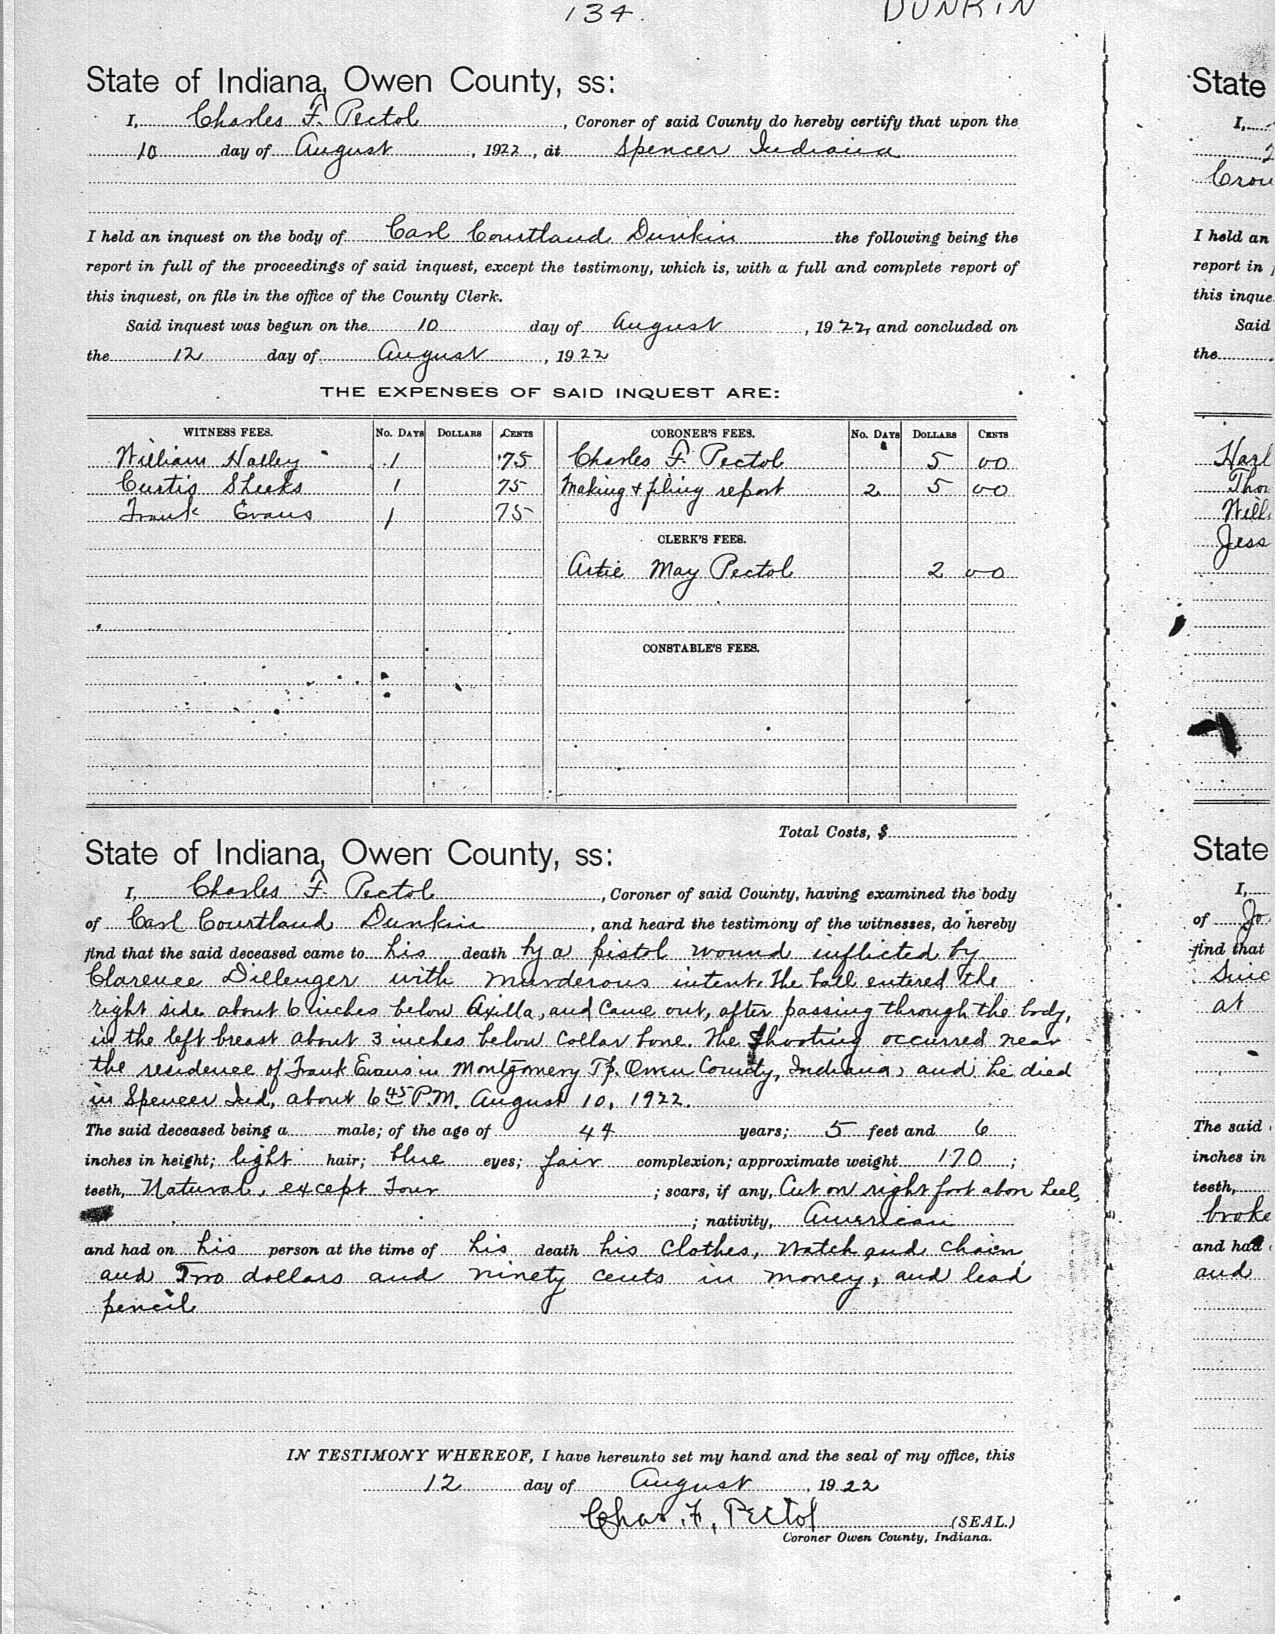 134.
DUNKIN
State of Indiana, Owen County, ss:
I, Charles F. Pectol, Coroner of said County do hereby certify that upon the
10 day of August, 1922, at Spencer Indiana
I held an inquest on the body of Carl Courtland Dunkin the following being the
report in full of the proceedings of said inquest, except the testimony, which is, with a full and complete report of
this inquest, on file in the office of the County Clerk.
Said inquest was begun on the 10 day of August, 1922, and concluded on
the 12 day of August, 1922
THE EXPENSES OF SAID INQUEST ARE:
WITNESS FEES. No. DAYS DOLLARS CENTS CORONER'S FEES. No. DAYS DOLLARS CENTS
William 1 75 Charles F. Pectol 5 00
Curtis Sheeks 1 75 Making & filing report 2 5 00
Frank Evans 1 75
CLERK'S FEES.
Artie May Pectol 2 00
CONSTABLE'S FEES.
Total Costs, $
State of Indiana, Owen County, ss:
I, Charles F. Pectol, Coroner of said County, having examined the body
of Carl Courtland Dunkin, and heard the testimony of the witnesses, do hereby
find that the said deceased came to his death by a pistol wound inflicted by
Clarence Dillenger with murderous intent. The ball entered the
right side about 6 inches below Axilla, and came out, after passing through the body,
in the left breast about 3 inches below collar bone. The Shooting occurred near
the residence of Frank Evans in Montgomery Tp. Owen County, Indiana, and he died
in Spencer Ind, about 6 45 P.M. August 10, 1922.
The said deceased being a male; of the age of 44 years; 5 feet and 6
inches in height; light hair; blue eyes; fair complexion; approximate weight 170;
teeth, Natural, except Four; scars, if any, Cut on right foot abov heel,
; nativity, American
and had on his person at the time of his death his clothes, watch and chain,
and Two dollars and ninety cents in money, and lead
pencil
IN TESTIMONY WHEREOF, I have hereunto set my hand and the seal of my office, this
12 day of August, 1922
Chas. F. Pectol (SEAL.)
Coroner Owen County, Indiana.
State
I,
2
I held an
report in
this inque
Said
the
Harl
Thos
Will
Jess
State
I,
of Jo
find that
Since
at
The said
inches in
teeth,
broke
and had
and